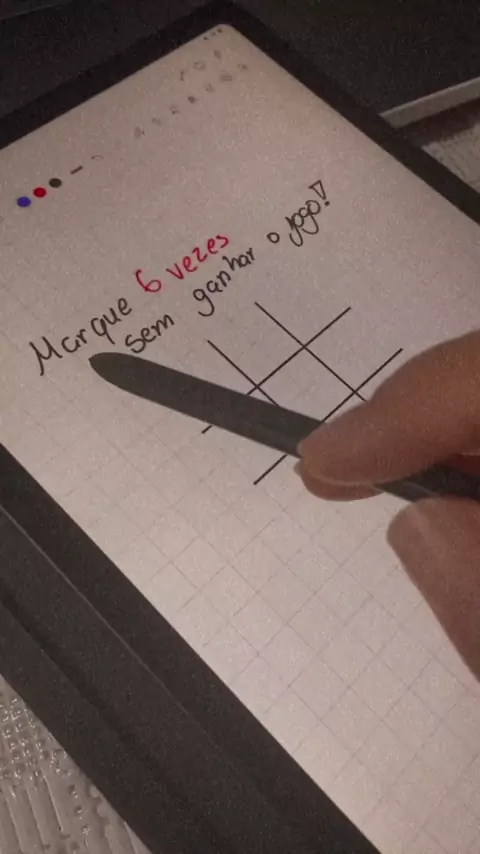 Marque 6 vezes
sem ganhar o jogo!